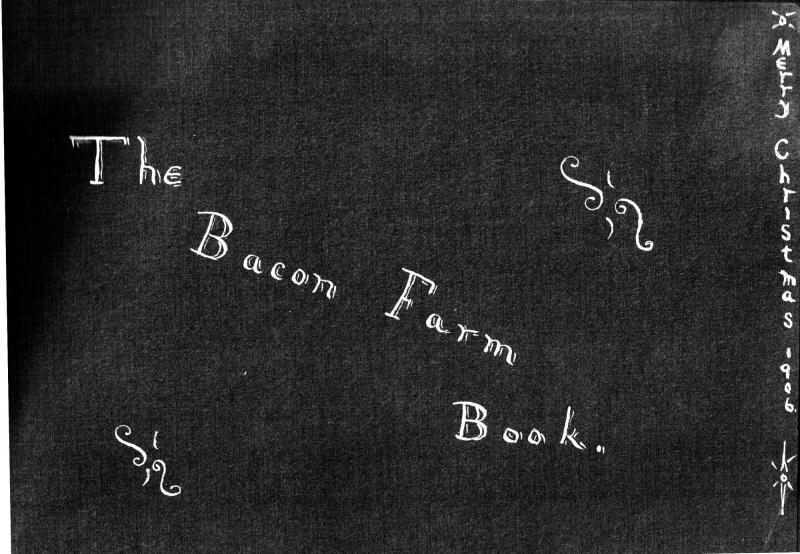 The
Bacon Farm
Book.
Merry Christmas 1906.